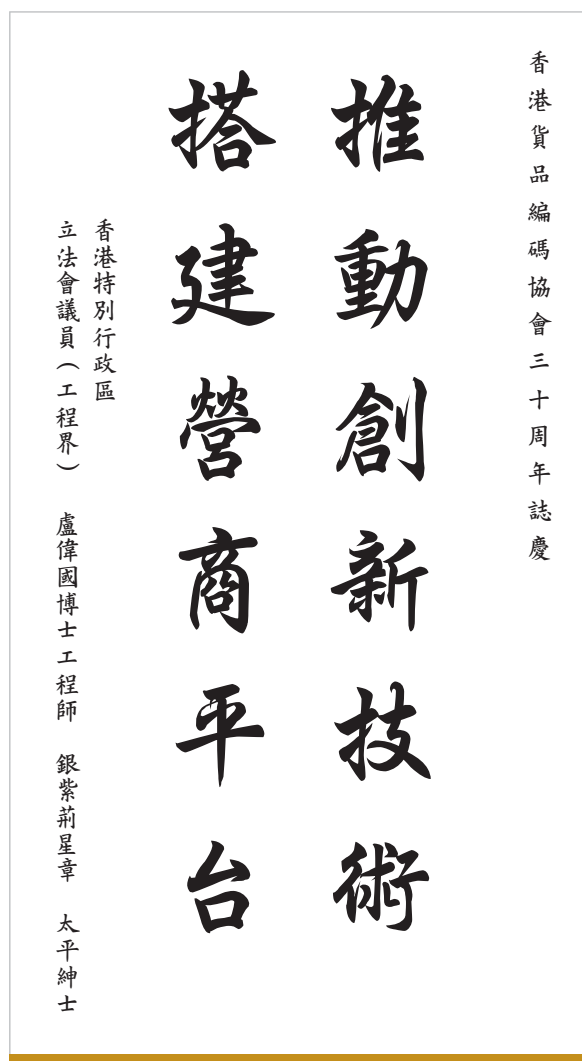 香港貨品編碼協會三十周年誌慶
推動創新技術
搭建營商平台
香港特別行政區
立法會議員（工程界） 盧偉國博士工程師 銀紫荊星章 太平紳士